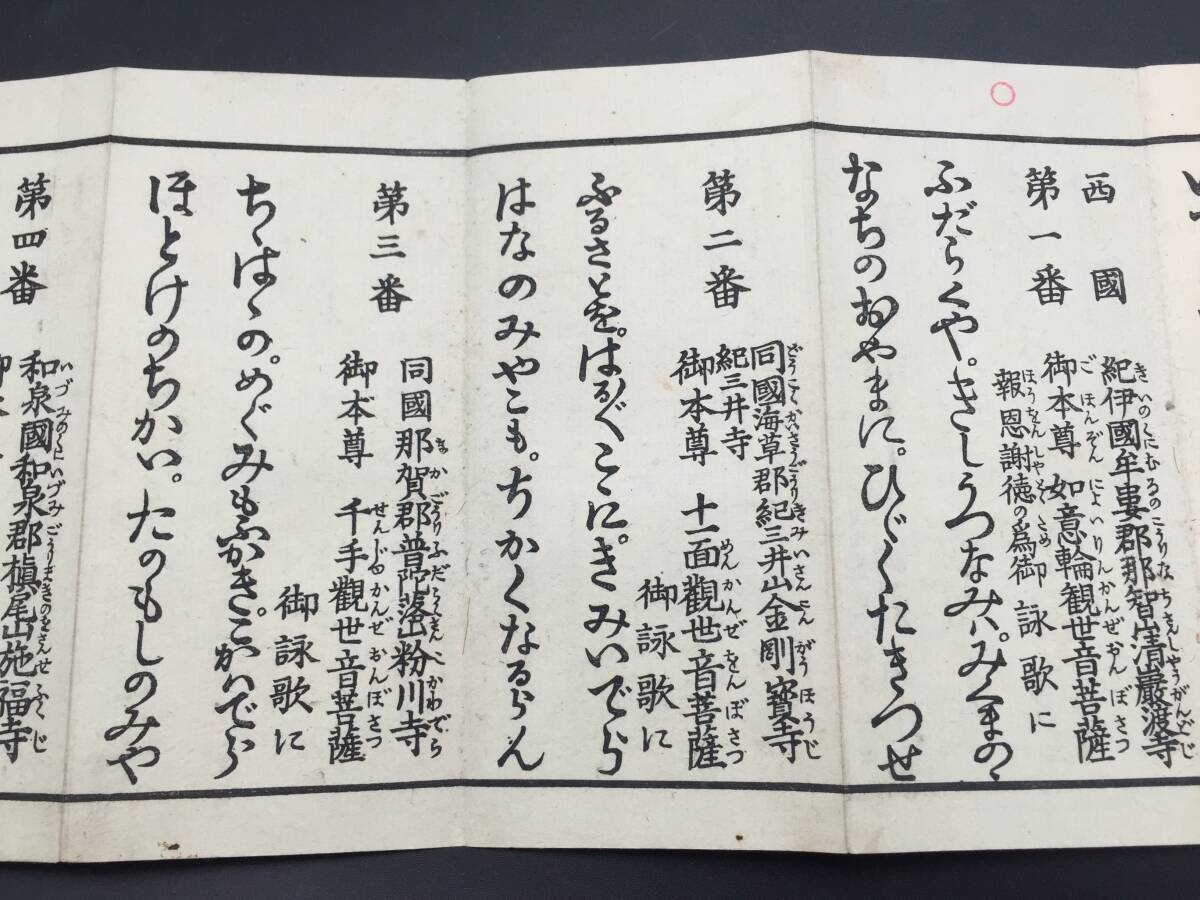 西國
第一番
紀伊國牟婁郡那智山清巖渡寺
御本尊 如意輪観世音菩薩
報恩謝徳の爲御詠歌に
ふだらくや。きしうつなみハ。みくまのゝ
なちのおやまに。ひゞくたきつせ
第二番
同國海草郡紀三井山金剛寳寺
紀三井寺
御本尊 十一面觀世音菩薩
御詠歌に
ふるさとを。はる〴〵こゝに。きみいでら
はなのみやこも。ちかくなるらん
第三番
同國那賀郡普陀落山粉川寺
御本尊 千手觀世音菩薩
御詠歌に
ちゝはゝの。めぐみもふかき。こかハでら
ほとけのちかい。たのもしのみや
第四番
和泉國和泉郡槇尾山施福寺